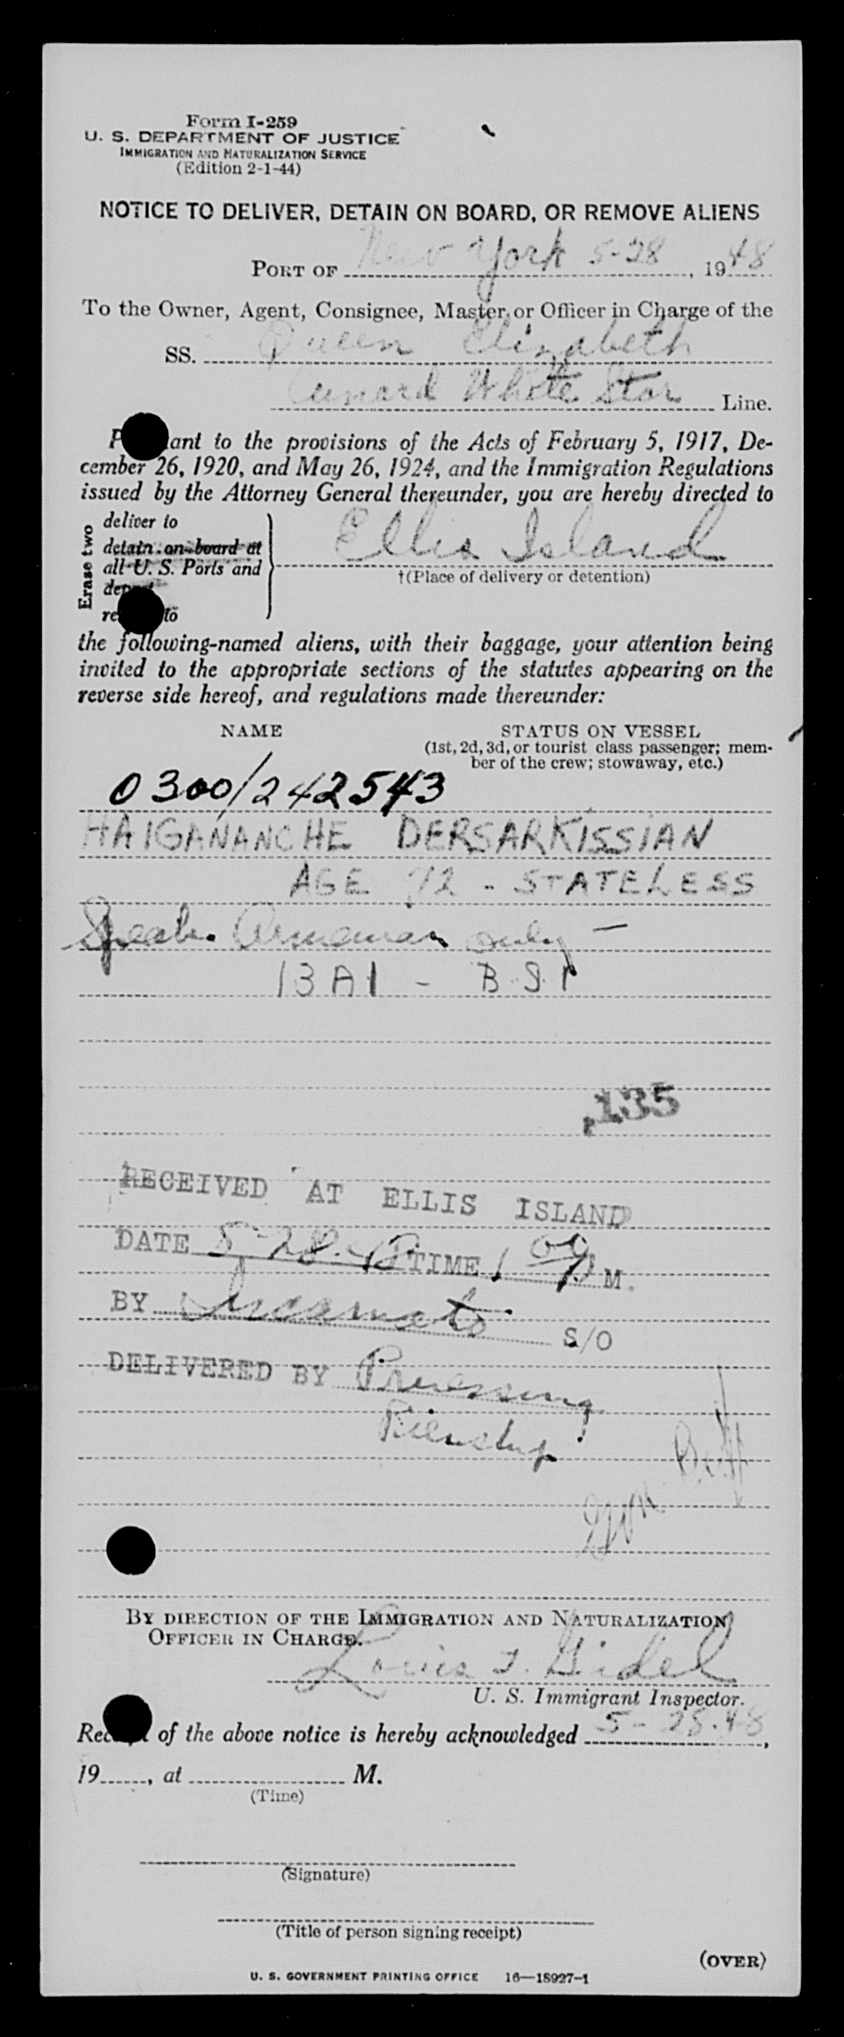 Form I-259
U. S. DEPARTMENT OF JUSTICE
IMMIGRATION AND NATURALIZATION SERVICE
(Edition 2-1-44)
NOTICE TO DELIVER, DETAIN ON BOARD, OR REMOVE ALIENS
PORT OF New York 5-28, 1948
To the Owner, Agent, Consignee, Master, or Officer in Charge of the
SS. Queen Elizabeth
Cunard White Star Line.
P ant to the provisions of the Acts of February 5, 1917, De-
cember 26, 1920, and May 26, 1924, and the Immigration Regulations
issued by the Attorney General thereunder, you are hereby directed to
Erase two
deliver to
detain on board at
all U. S. Ports and
to
Ellis Island
†(Place of delivery or detention)
the following-named aliens, with their baggage, your attention being
invited to the appropriate sections of the statutes appearing on the
reverse side hereof, and regulations made thereunder:
NAME STATUS ON VESSEL
(1st, 2d, 3d, or tourist class passenger; mem-
ber of the crew; stowaway, etc.)
0300/242543
HAIGANANCHE DERSARKISSIAN
AGE 72 - STATELESS
Speaks Armenian only -
13A1 - B.S.I
135
RECEIVED AT ELLIS ISLAND
DATE 5-28-48 TIME 1 09 P M.
BY Incarnato S/O
DELIVERED BY
BY DIRECTION OF THE IMMIGRATION AND NATURALIZATION
OFFICER IN CHARGE.
Louis T. Gidel
U. S. Immigrant Inspector.
Rec t of the above notice is hereby acknowledged 5-28-48,
19 , at M.
(Time)
(Signature)
(Title of person signing receipt)
(OVER)
U. S. GOVERNMENT PRINTING OFFICE 16—18927-1